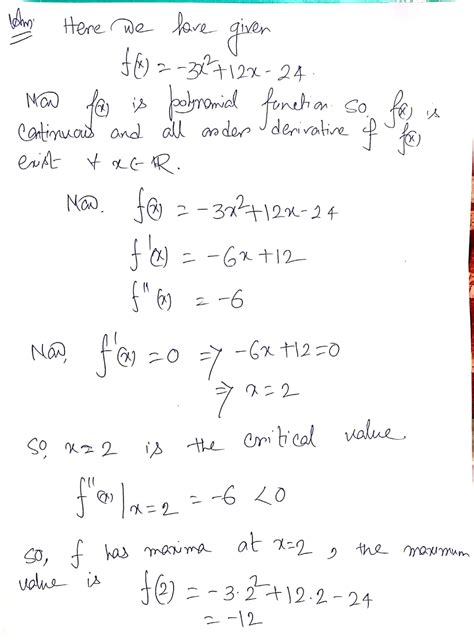 Ans Here we have given
f(x) = -3x²+12x-24.
Now f(x) is polynomial function. so f(x) is
continuous and all order derivative of f(x)
exist ∀ x∈ℝ.
Now. f(x) = -3x²+12x-24
f'(x) = -6x+12
f''(x) = -6
Now, f'(x) = 0 ⇒ -6x+12=0
⇒ x=2
So, x=2 is the critical value.
f''(x)|x=2 = -6 <0
So, f has maxima at x=2, the maximum
value is f(2) = -3.2²+12.2-24
= -12